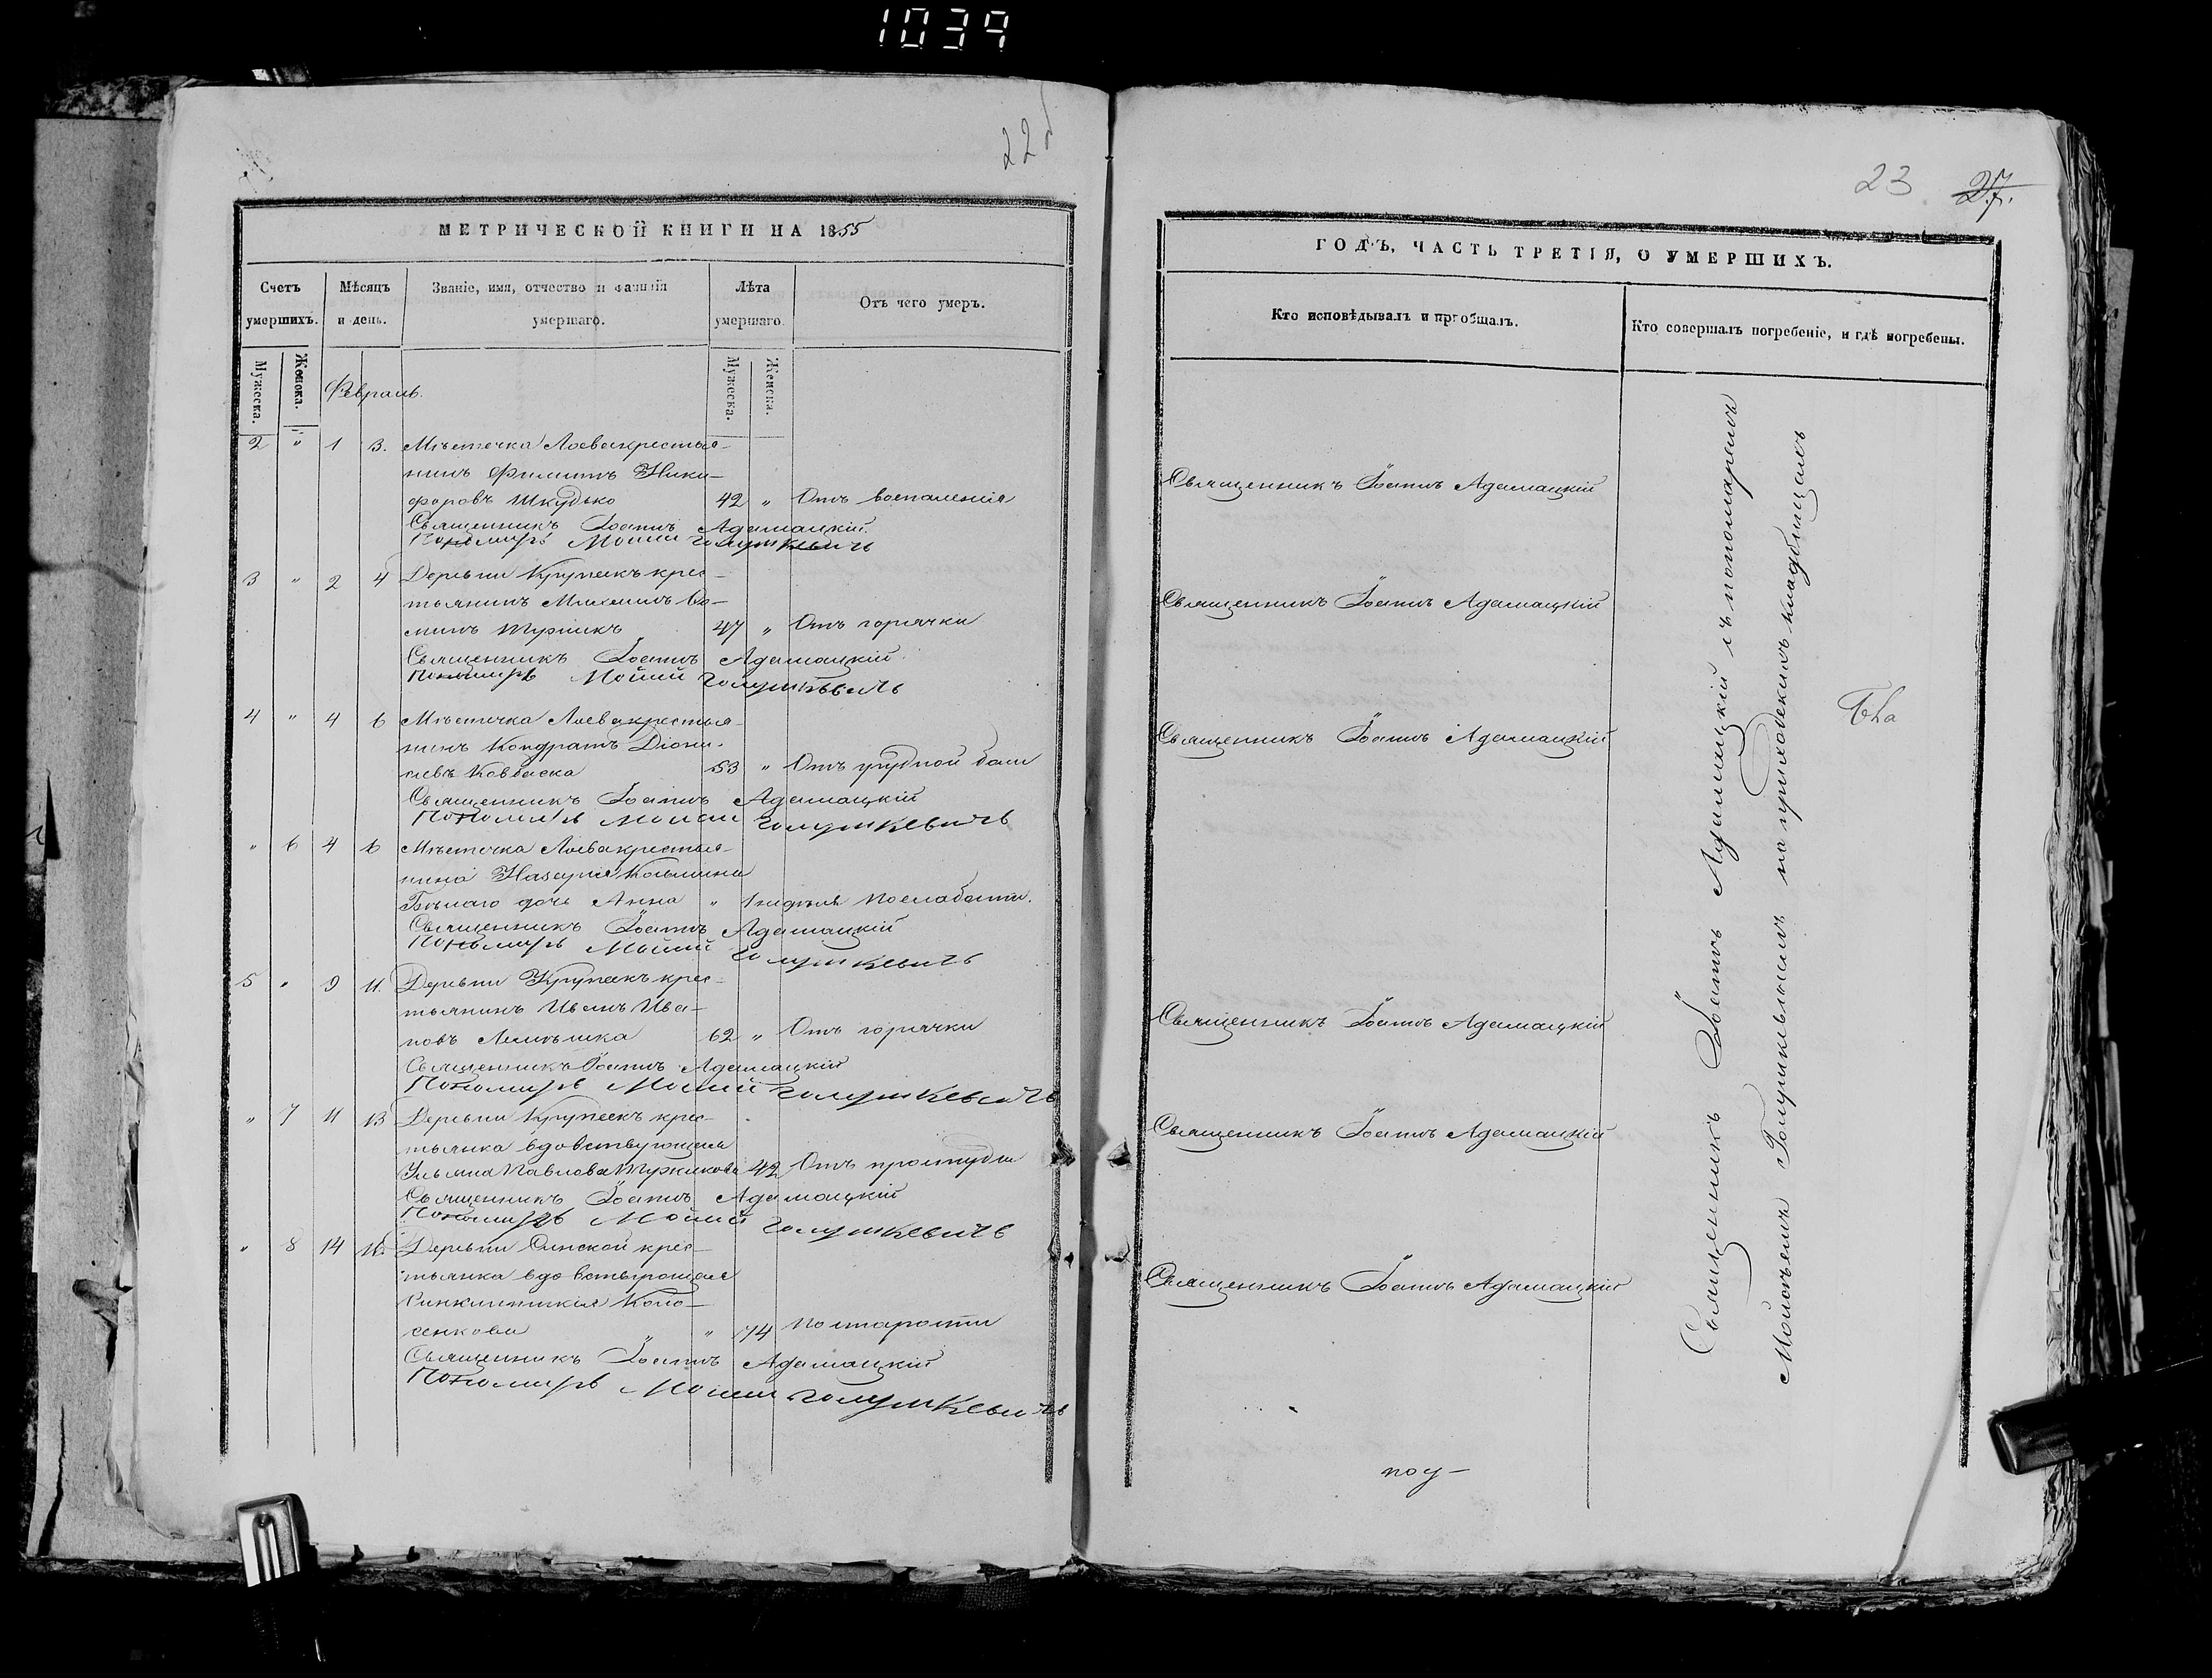 1034
22
23 27.
МЕТРИЧЕСКОЙ КНИГИ НА 1855
Счетъ умершихъ.
Мѣсяцъ и день.
Званіе, имя, отчество и фамилія умершаго.
Лѣта умершаго.
Отъ чего умеръ.
Мужеска. Женска.
Мужеска. Женска.
Февраль.
2 " 1 3. Мѣстечка Лоева крестья-
нинъ Филиппъ Ники-
форовъ Шкудько 42 " Отъ воспаленія
Священникъ Іоаннъ Адамацкій.
Пономарь Моисей Голушкевичъ
3 " 2 4 Деревни Крупеекъ крес-
тьянинъ
47 " Отъ горячки
Священникъ Іоаннъ Адамацкій.
Пономарь Моисей Голушкевичъ
4 " 4 6 Мѣстечка Лоева крестья-
нинъ Кондратъ Діони-
сіевъ Ковбаска 53 " Отъ грудной боли
Священникъ Іоаннъ Адамацкій
Пономарь Моисей Голушкевичъ
" 6 4 6 Мѣстечка Лоева крестья-
нина Назарія
дочь Анна " По слабости.
Священникъ Іоаннъ Адамацкій
Пономарь Моисей Голушкевичъ
5 " 9 11. Деревни Крупеекъ крес-
тьянинъ Иванъ Ива-
новъ 62 " Отъ горячки
Священникъ Іоаннъ Адамацкій
Пономарь Моисей Голушкевичъ
" 7 11 13 Деревни Крупеекъ крес-
тьянка вдовствующая
Ульяна Павлова 42 Отъ простуды
Священникъ Іоаннъ Адамацкій
Пономарь Моисей Голушкевичъ
" 8 14 16. Деревни Синской крес-
тьянка вдовствующая
" 74 По старости
Священникъ Іоаннъ Адамацкій
Пономарь Моисей Голушкевичъ
ГОДЪ, ЧАСТЬ ТРЕТІЯ, О УМЕРШИХЪ.
Кто исповѣдывалъ и пріобщалъ.
Кто совершалъ погребеніе, и гдѣ погребены.
Священникъ Іоаннъ Адамацкій
Священникъ Іоаннъ Адамацкій
Священникъ Іоаннъ Адамацкій
Священникъ Іоаннъ Адамацкій
Священникъ Іоаннъ Адамацкій
Священникъ Іоаннъ Адамацкій
Священникъ Іоаннъ Адамацкій съ пономаремъ
Моисеемъ Голушкевичемъ на приходскихъ кладбищахъ